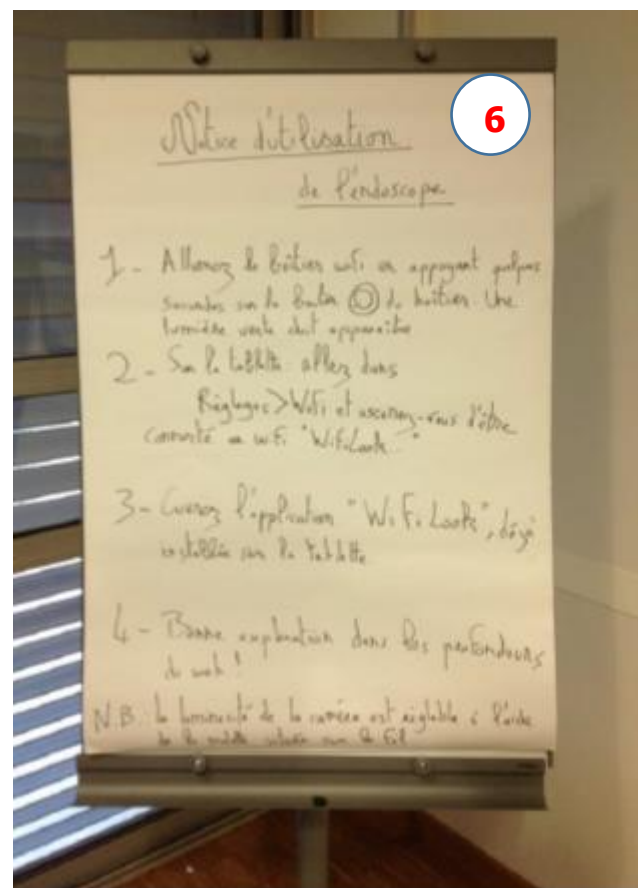 6
Notice d'utilisation
de l'endoscope
1 - Allumez le boîtier wifi en appuyant quelques
secondes sur le bouton du boîtier. Une
lumière verte doit apparaître
2 - Sur la tablette allez dans
Réglages > WiFi et assurez-vous d'être
connecté au wifi "WifiLook..."
3 - Ouvrez l'application "WiFi Look", déjà
installée sur la tablette
4 - Bonne exploration dans les profondeurs
du web !
N.B. la luminosité de la caméra est réglable à l'aide
de la molette située sur le fil